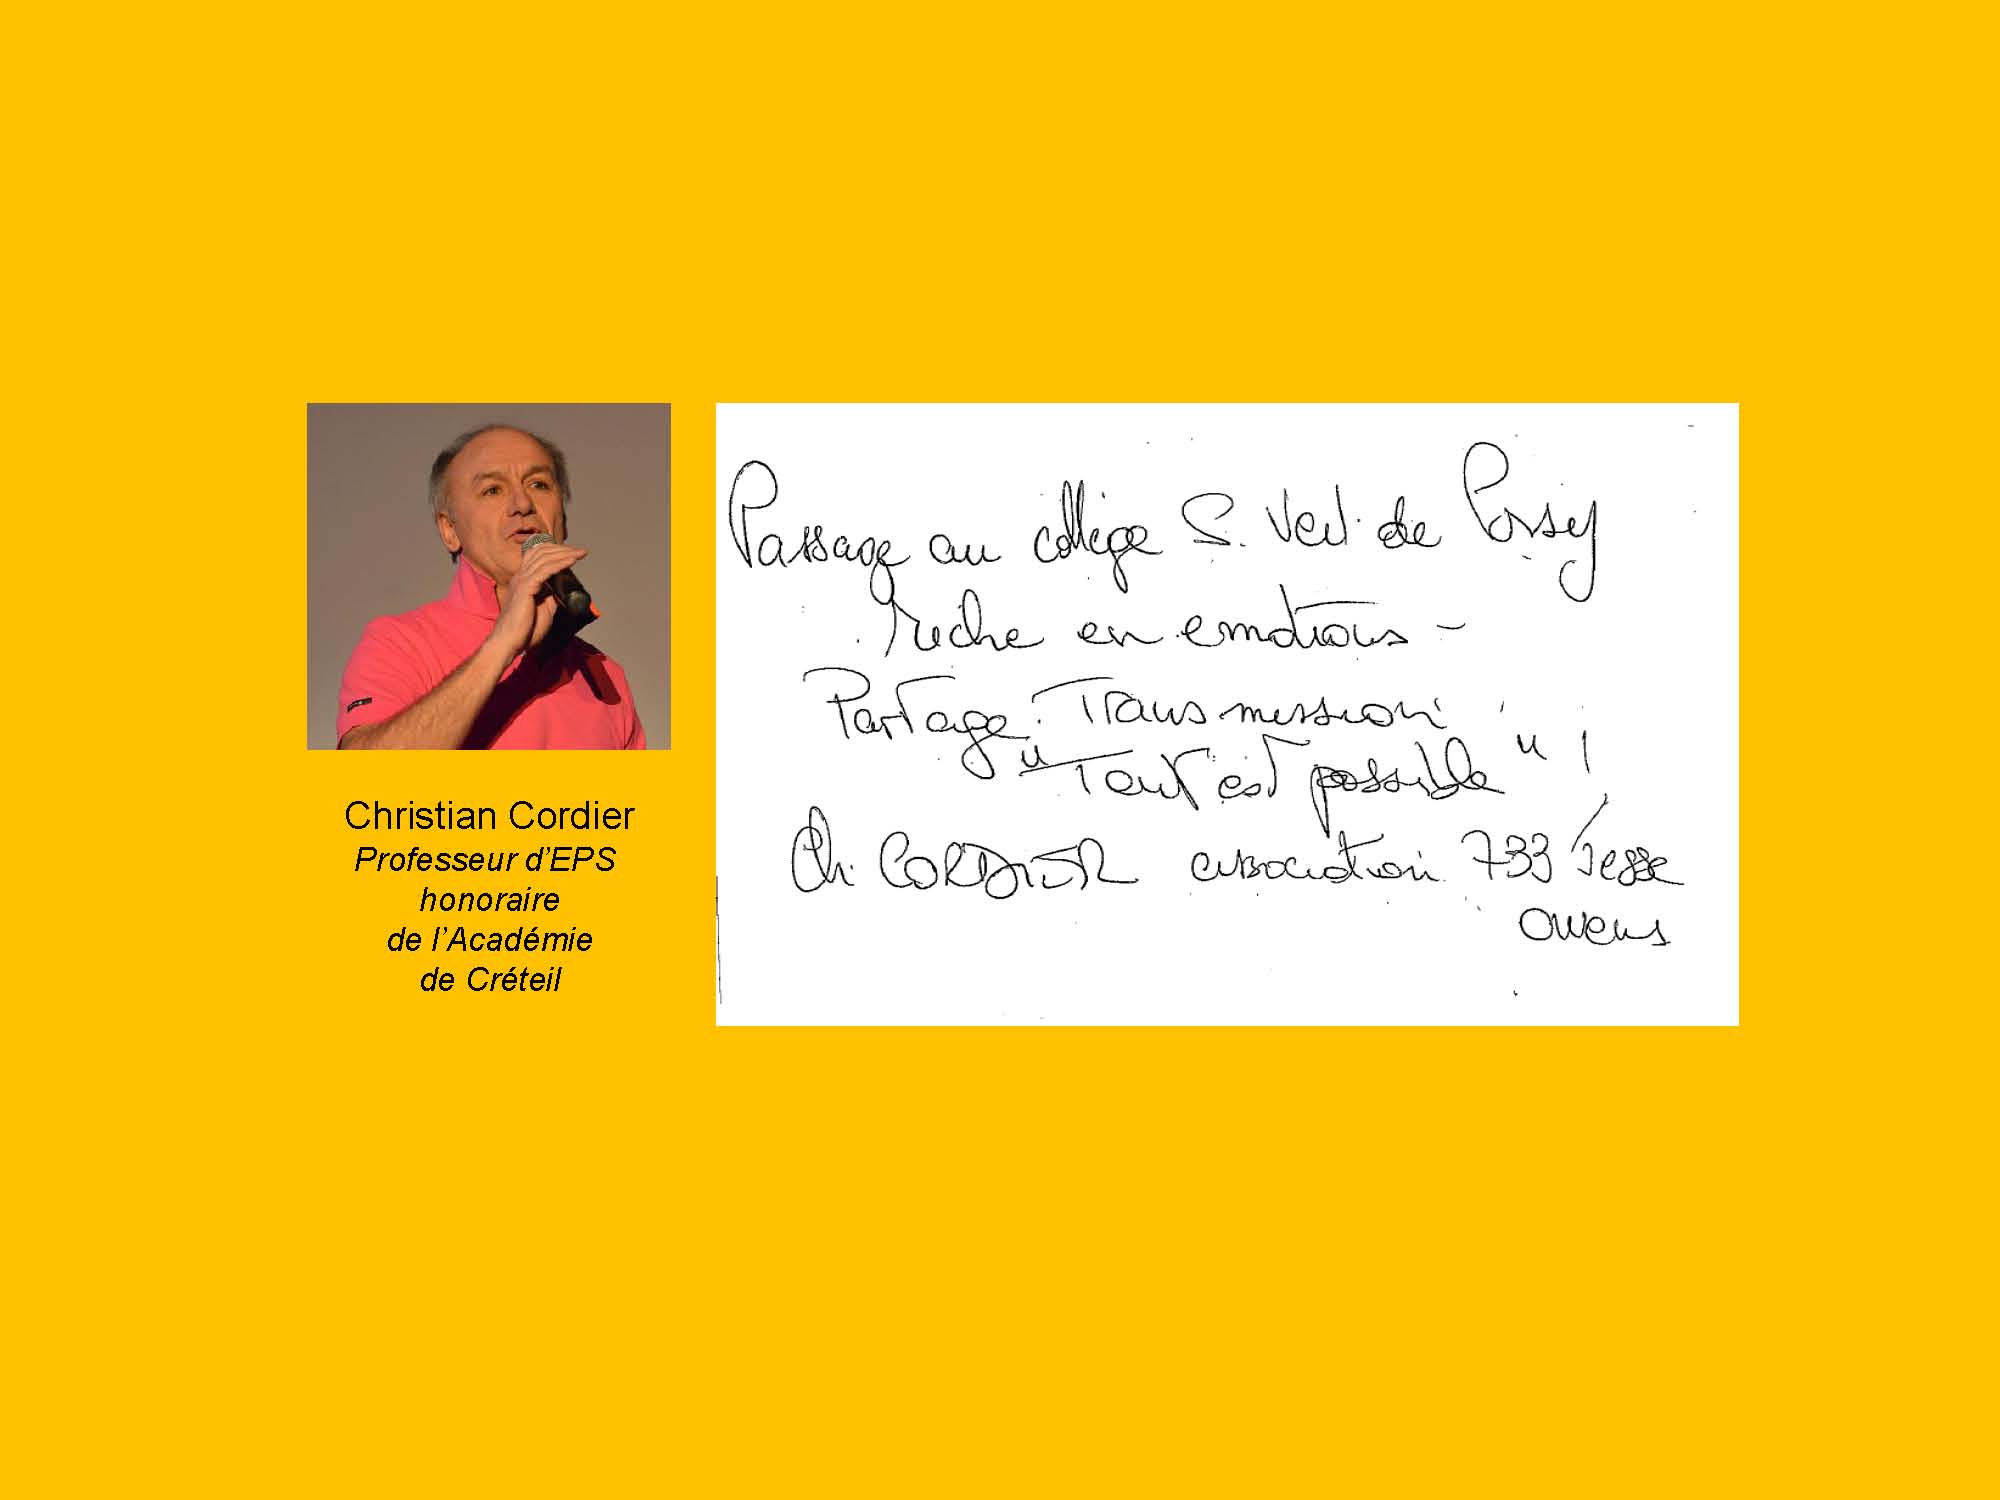 Christian Cordier
Professeur d'EPS
honoraire
de l'Académie
de Créteil
Passage au collège S. Veil de Poissy
riche en emotions -
Partage. Transmission
"Tout est possible" !
Ch. CORDIER association 733 Jesse
Owens